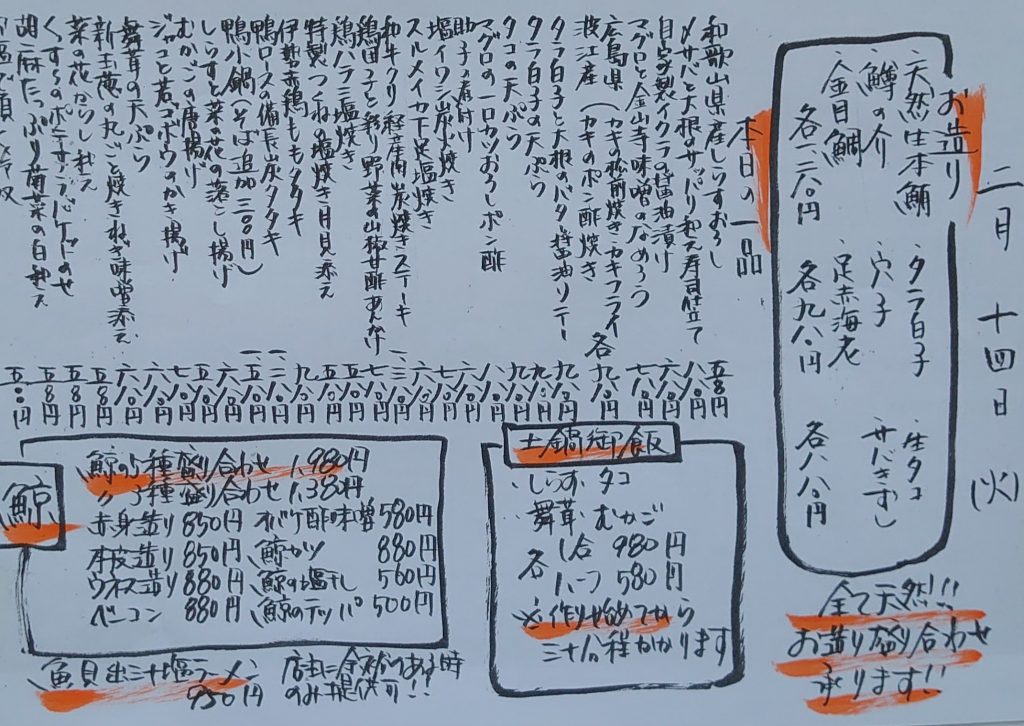 二月 十四日 (火)
お造り
天然生本鮪
鱒の介
金目鯛
各一二八〇円
タラ白子
穴子
足赤海老
各九八〇円
生タコ
サバきずし
各八八〇円
全て天然!!
お造り盛り合わせ
承ります!!
本日の一品
和歌山県産しらすおろし 五八〇円
〆サバと大根のサッパリ和え寿司仕立て 八八〇円
自家製イクラの醤油漬け 八〇円
マグロと金山寺味噌のなめろう 七八〇円
広島県 (カキの松前焼き・カキフライ 各九八〇円
浪江産 (カキのポン酢焼き
タラ白子と大根のバター醤油ソテー 九八〇円
タラ白子の天ぷら 九八〇円
タコの天ぷら 九八〇円
マグロの一口カツおろしポン酢 八八〇円
助子の煮付け 八〇円
塩イワシ炭火焼き
スルメイカ下足塩焼き 六八〇円
和牛クリ 軽産肉炭焼きステーキ
鶏団子と彩り野菜の山椒甘酢あんかけ
鶏ハラミ塩焼き
特製つくねの塩焼き月見添え
伊勢赤鶏ももタタキ
鴨ロースの備長炭タタキ
鴨小鍋(そば追加三〇〇円)
しらすと菜の花の落とし揚げ
むかごの唐揚げ
ジャコと若ゴボウのかき揚げ
舞茸の天ぷら
新玉葱の丸ごと焼きねぎ味噌添え 五八〇円
菜の花からし和え 五八〇円
くずきのポテサラバゲットのせ 五八〇円
胡麻たっぷり菊菜の白和え 五八〇円
土鍋御飯
・しらす・タコ
・舞茸・むかご
各 1合 980円
ハーフ 580円
※作り始めてから
三十分程かかります
鯨
鯨の5種盛り合わせ 1,980円
〃 3種盛り合わせ 1,380円
赤身造り 850円 オバケ酢味噌 580円
本皮造り 850円 鯨カツ 880円
ウネス造り 880円 鯨の塩干し 560円
ベーコン 880円 鯨のテッパ 500円
魚貝出汁塩ラーメン
950円
店主に余裕がある時
のみ提供可!!